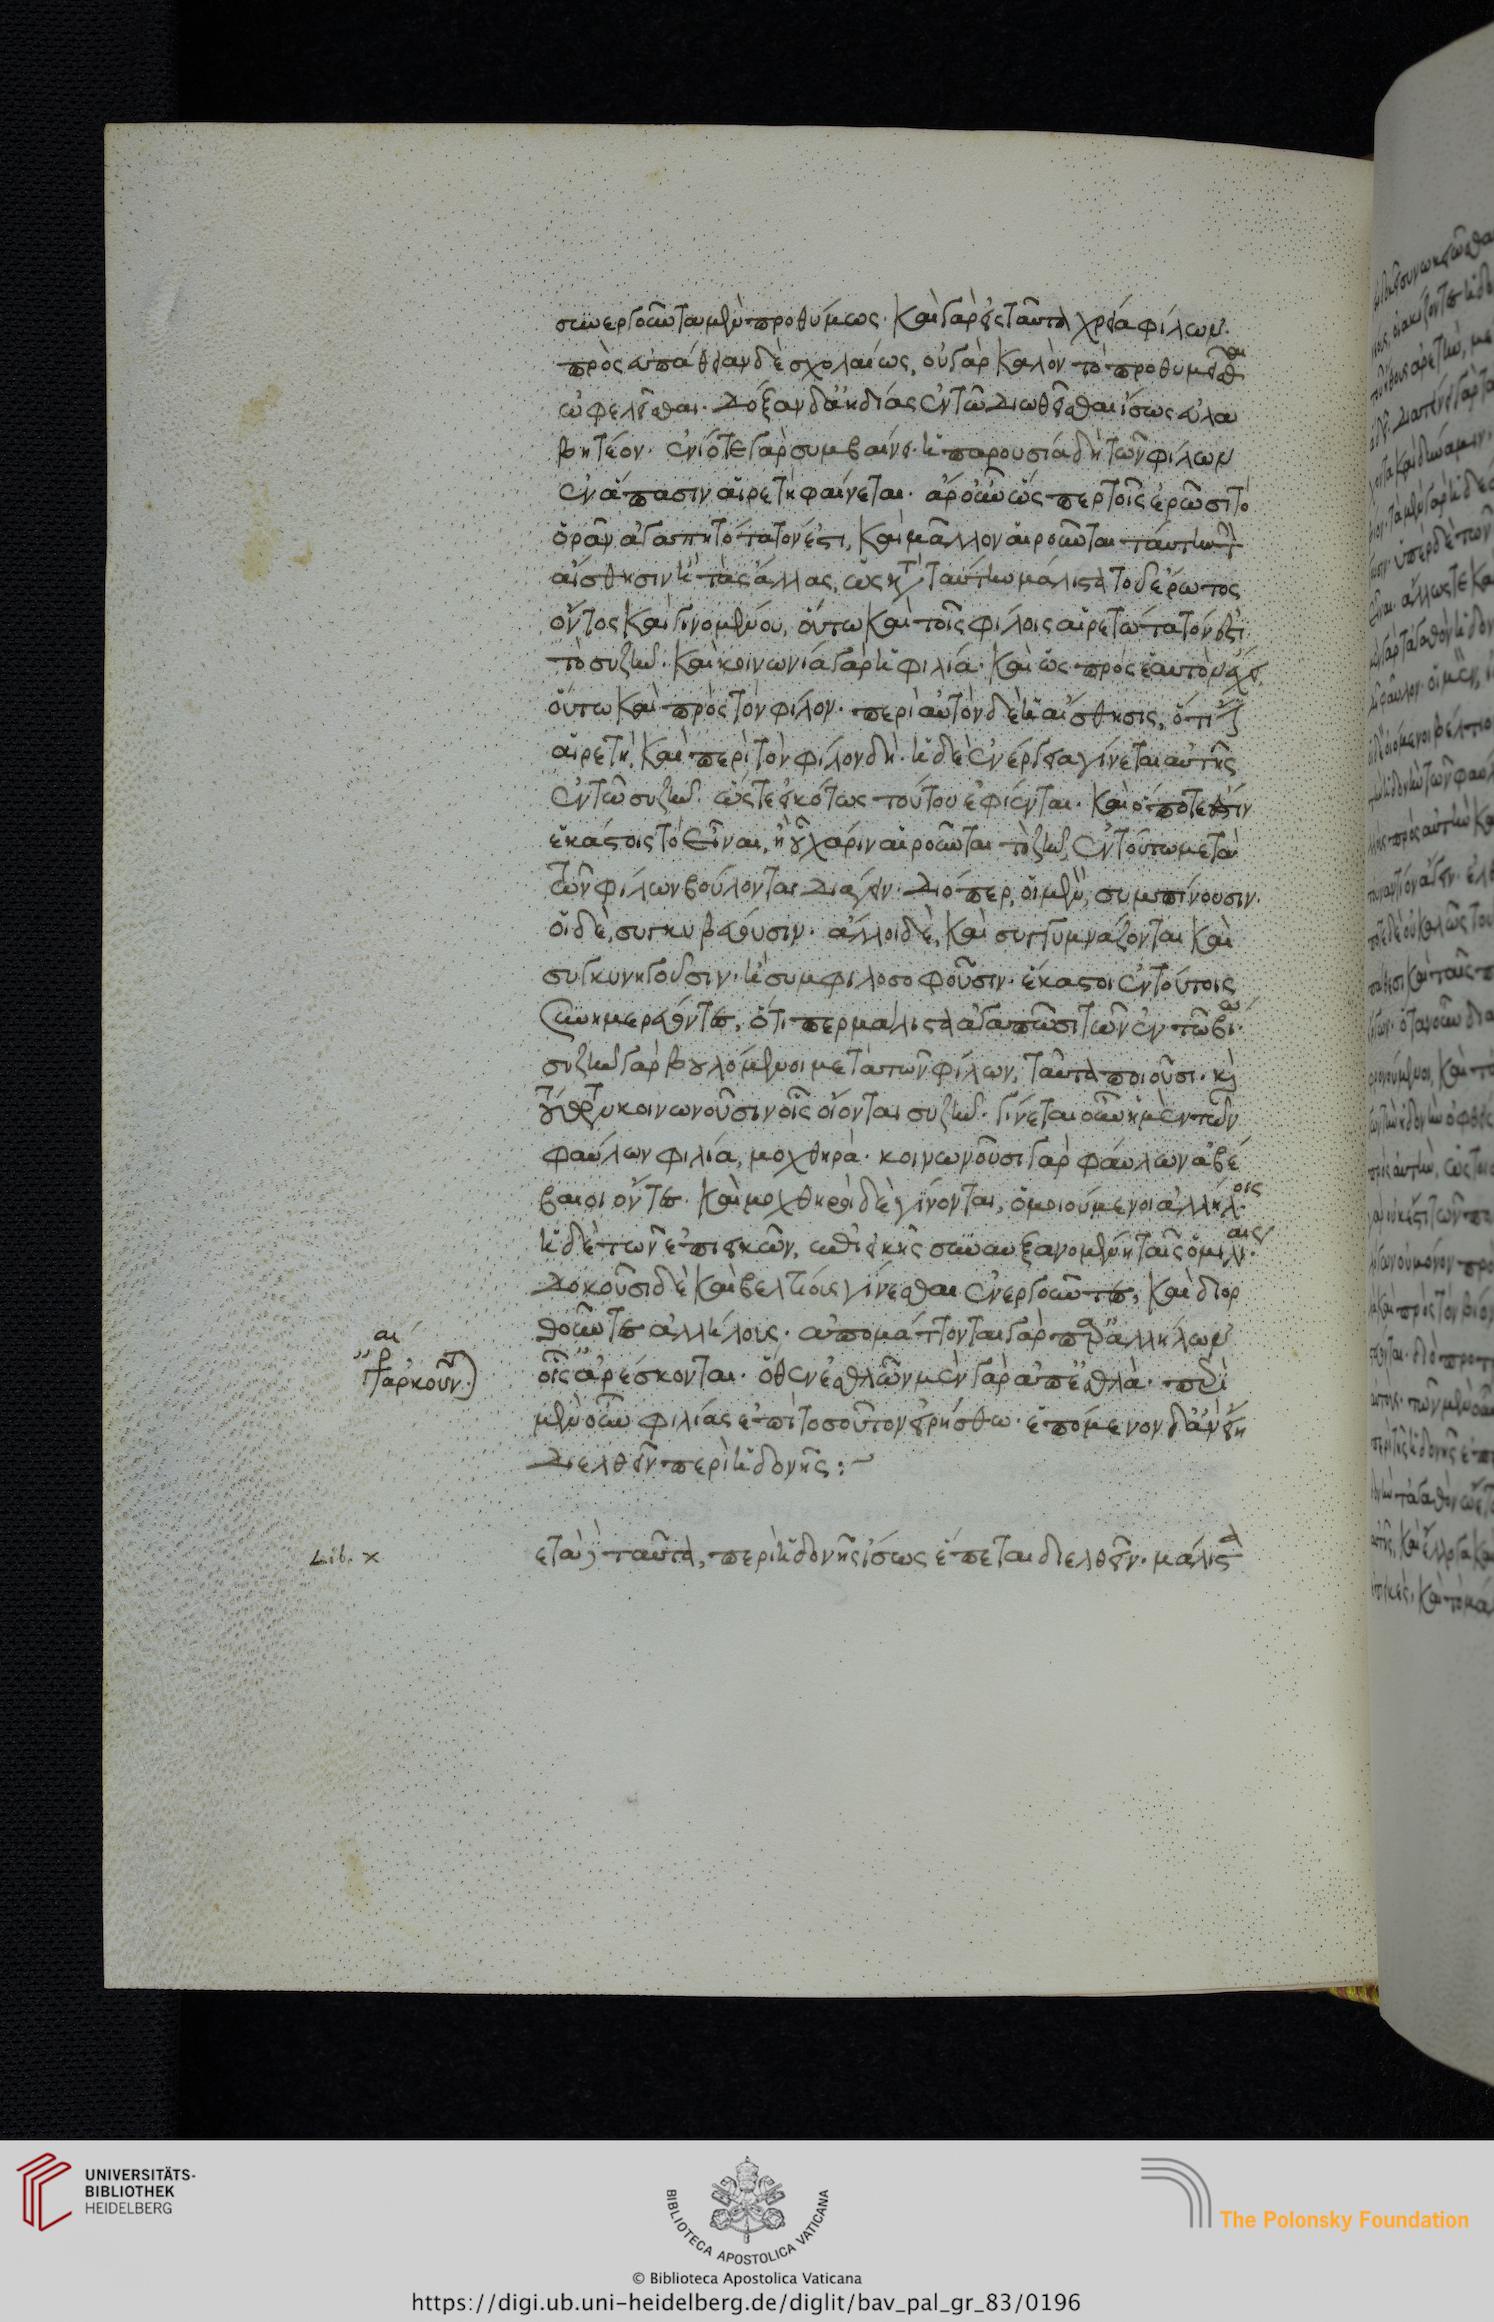 συνεργοῦντα μὲν προθύμως· καὶ γὰρ εἰς ταῦτα χρεία φίλων·
πρὸς εὐπάθειαν δὲ σχολαίως, οὐ γὰρ καλὸν τὸ προθυμεῖσθαι
ὠφελεῖσθαι. δόξαν δ' ἀηδίας ἐν τῶ διωθεῖσθαι ἴσως εὐλα
βητέον. ἐνίοτε γὰρ συμβαίνει. ἡ παρουσία δὴ τῶν φίλων
ἐν ἅπασιν αἱρετὴ φαίνεται. ἆρ' οὖν ὥσπερ τοῖς ἐρῶσι τὸ
ὁρᾶν ἀγαπητότατόν ἐστι, καὶ μᾶλλον αἱροῦνται ταύτην τὴν
αἴσθησιν ἢ τὰς ἄλλας, ὡς κατὰ ταύτην μάλιστα τοῦ ἔρωτος
ὄντος καὶ γινομένου, οὕτω καὶ τοῖς φίλοις αἱρετώτατόν ἐστι
τὸ συζῆν. καὶ κοινωνία γὰρ ἡ φιλία. καὶ ὡς πρὸς ἑαυτὸν ἔχει,
οὕτω καὶ πρὸς τὸν φίλον. περὶ αὐτὸν δὲ ἡ αἴσθησις, ὅτι ἔστιν
αἱρετή, καὶ περὶ τὸν φίλον δή. ἡ δὲ ἐνέργεια γίνεται αὐτῆς
ἐν τῶ συζῆν. ὥστε εἰκότως τούτου ἐφίενται. καὶ ὅ ποτε ἐστὶν
ἑκάστοις τὸ εἶναι, ἢ οὗ χάριν αἱροῦνται τὸ ζῆν, ἐν τούτω μετὰ
τῶν φίλων βούλονται διάγειν. διόπερ, οἱ μὲν, συμπίνουσιν.
οἱ δὲ, συγκυβεύουσιν. ἄλλοι δὲ, καὶ συγγυμνάζονται καὶ
συγκυνηγοῦσιν. ἢ συμφιλοσοφοῦσιν. ἕκαστοι ἐν τούτοις
συνημερεύοντες, ὅτι περ μάλιστα ἀγαπῶσι τῶν ἐν τῶ βίω.
συζῆν γὰρ βουλόμενοι μετὰ τῶν φίλων, ταῦτα ποιοῦσι. καὶ
τούτων κοινωνοῦσιν οἷς οἴονται συζῆν. γίνεται οὖν ἡ μὲν τῶν
φαύλων φιλία, μοχθηρά. κοινωνοῦσι γὰρ φαύλων ἀβέ
βαιοι ὄντες. καὶ μοχθηροὶ δὲ γίνονται, ὁμοιούμενοι ἀλλήλοις.
ἡ δὲ τῶν ἐπιεικῶν, ἐπιεικὴς συναυξανομένη ταῖς ὁμιλίαις.
δοκοῦσι δὲ καὶ βελτίους γίνεσθαι ἐνεργοῦντες, καὶ διορ
θοῦντες ἀλλήλους. ἀπομάττονται γὰρ παρ' ἀλλήλων
οἷς ἀρέσκονται. ὅθεν ἐσθλῶν μὲν γὰρ ἀπ' ἐσθλά. περὶ
μὲν οὖν φιλίας ἐπὶ τοσοῦτον εἰρήσθω. ἑπόμενον δ' ἂν εἴη
διελθεῖν περὶ ἡδονῆς:~
Lib. x
ετὰ δὲ ταῦτα, περὶ ἡδονῆς ἴσως ἕπεται διελθεῖν. μάλιστα
UNIVERSITÄTS-
BIBLIOTHEK
HEIDELBERG
BIBLIOTECA APOSTOLICA VATICANA
The Polonsky Foundation
© Biblioteca Apostolica Vaticana
https://digi.ub.uni-heidelberg.de/diglit/bav_pal_gr_83/0196